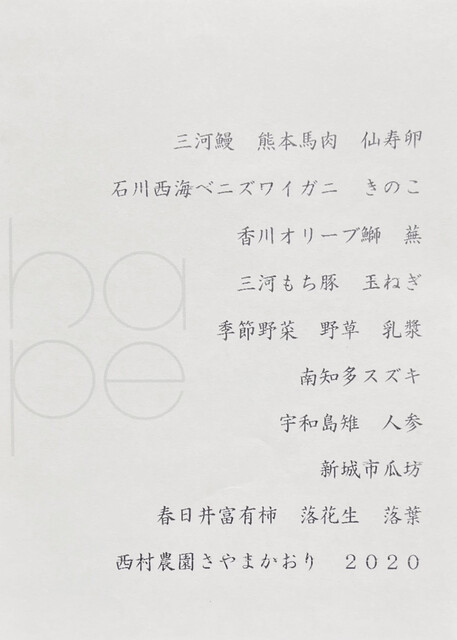 三河鰻　熊本馬肉　仙寿卵
石川西海ベニズワイガニ　きのこ
香川オリーブ鰤　蕪
三河もち豚　玉ねぎ
季節野菜　野草　乳漿
南知多スズキ
宇和島雉　人参
新城市瓜坊
春日井富有柿　落花生　落葉
西村農園さやまかおり　２０２０
hape